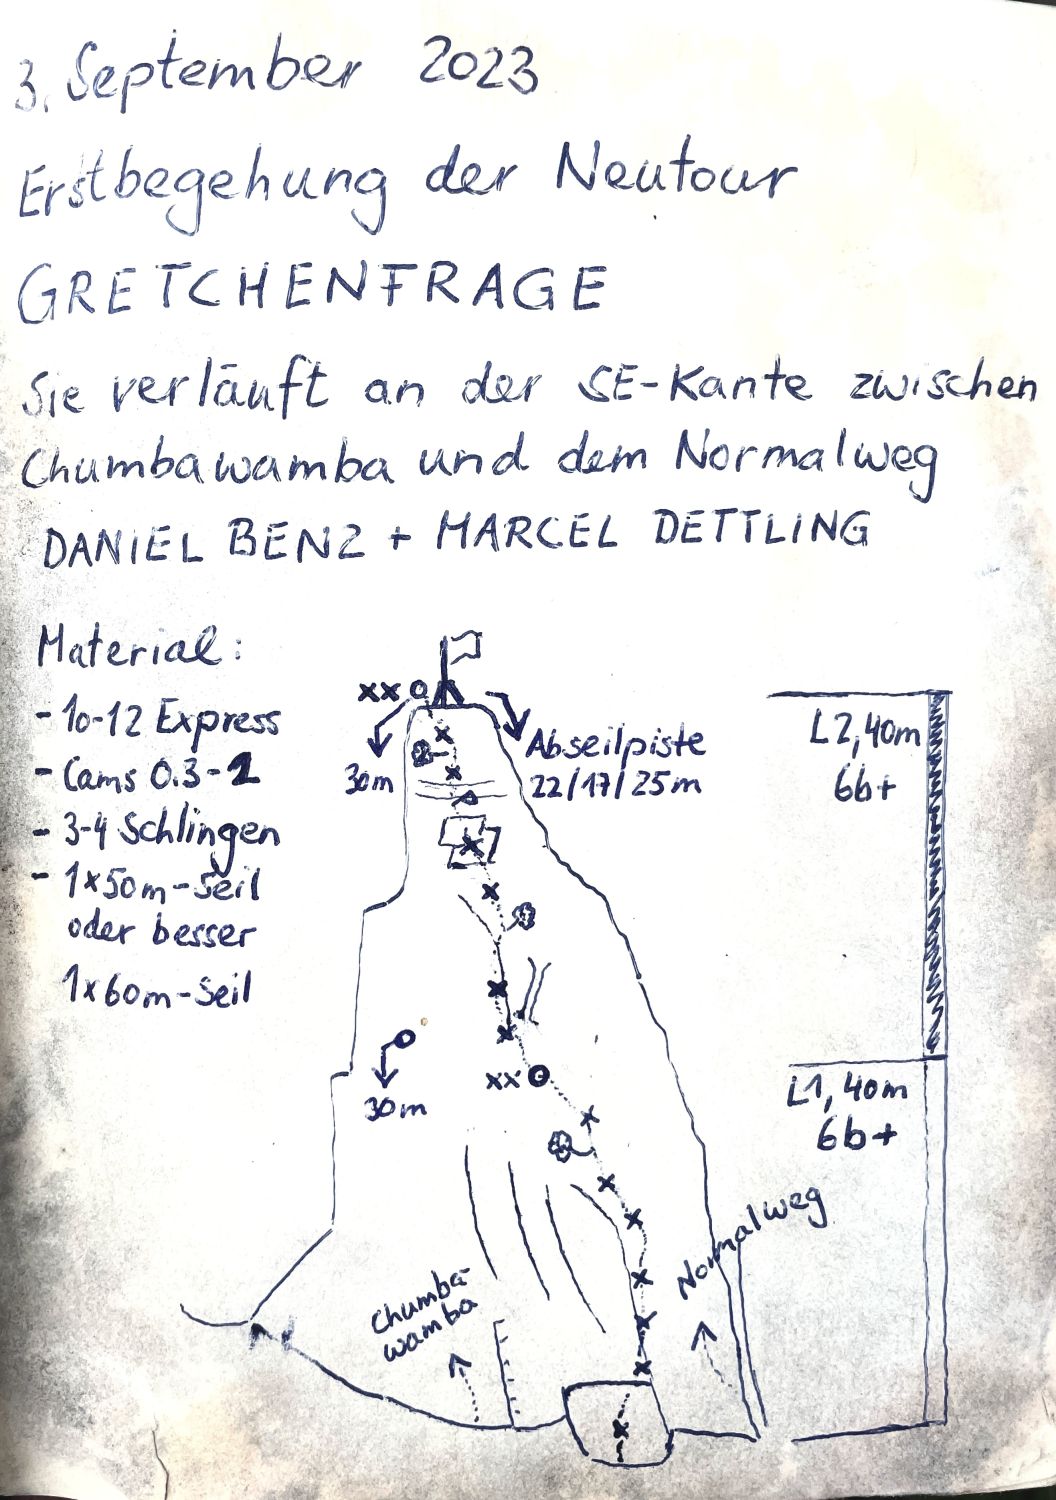 3. September 2023
Erstbegehung der Neutour
GRETCHENFRAGE
Sie verläuft an der SE-Kante zwischen
Chumbawamba und dem Normalweg
DANIEL BENZ + MARCEL DETTLING
Material:
- 10-12 Express
- Cams 0.3-1
- 3-4 Schlingen
- 1x50m-Seil
oder besser
1x60m-Seil
xx
30m
Abseilpiste
22/17/25m
L2, 40m
6b+
xx
30m
L1, 40m
6b+
Chumba-
wamba
Normalweg